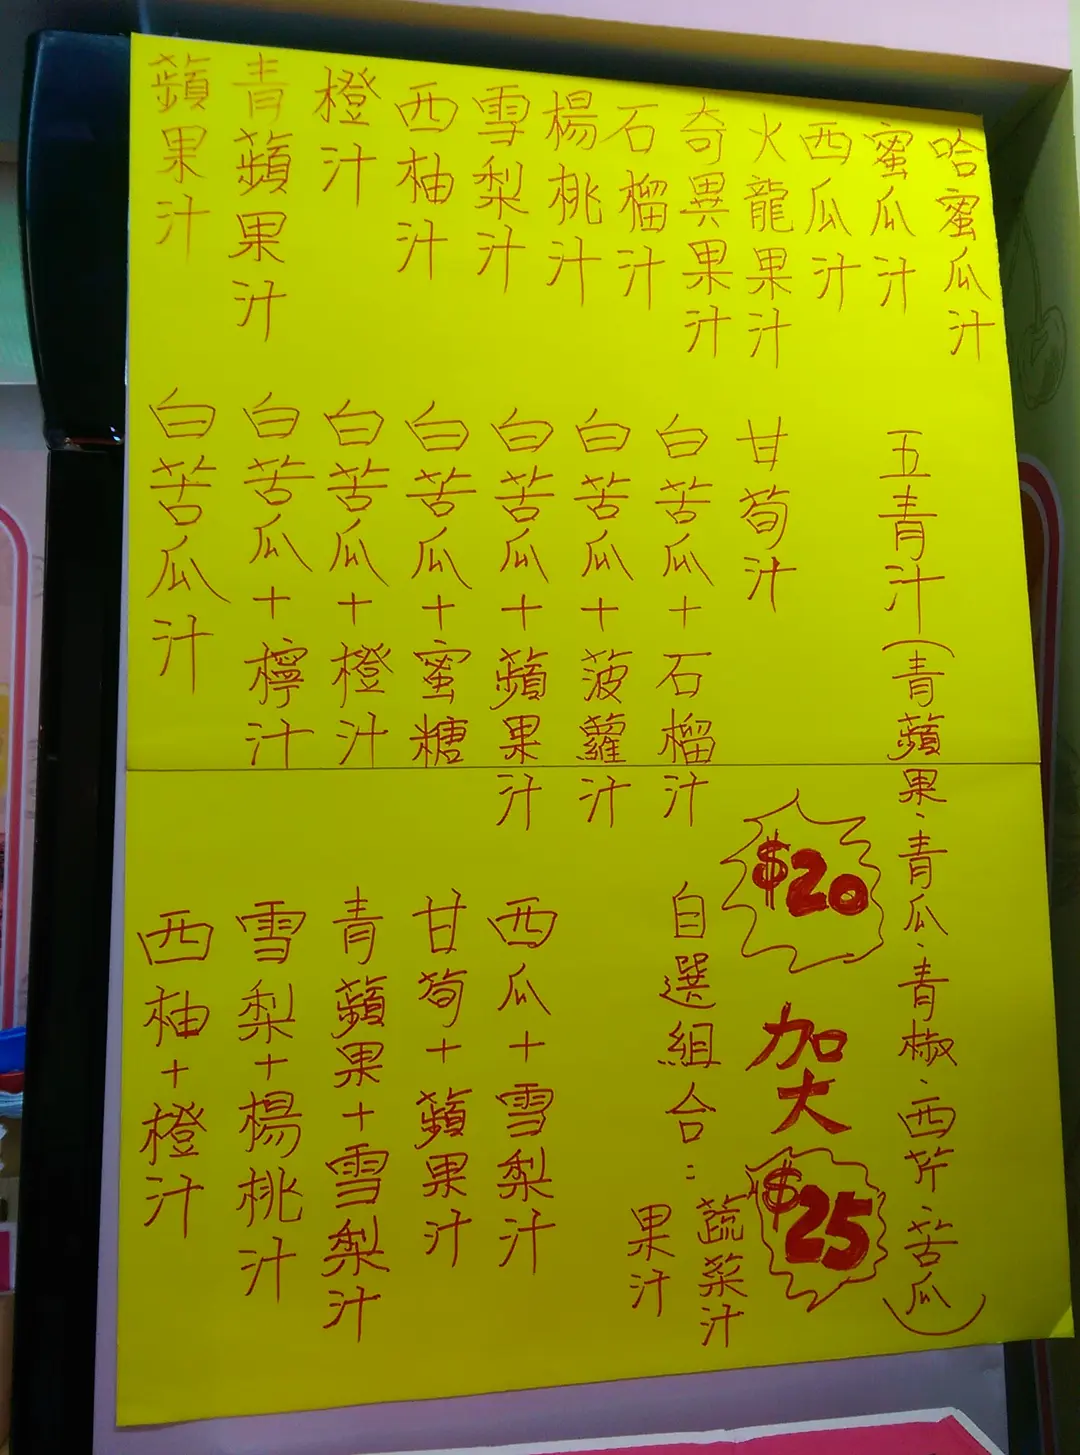 哈蜜瓜汁
蜜瓜汁
西瓜汁
火龍果汁
奇異果汁
石榴汁
楊桃汁
雪梨汁
西柚汁
橙汁
青蘋果汁
蘋果汁
五青汁(青蘋果、青瓜、青椒、西芹、苦瓜)
甘荀汁
白苦瓜+石榴汁
白苦瓜+菠蘿汁
白苦瓜+蘋果汁
白苦瓜+蜜糖
白苦瓜+橙汁
白苦瓜+檸汁
白苦瓜汁
$20
加大
$25
自選組合:
蔬菜汁
果汁
西瓜+雪梨汁
甘荀+蘋果汁
青蘋果+雪梨汁
雪梨+楊桃汁
西柚+橙汁